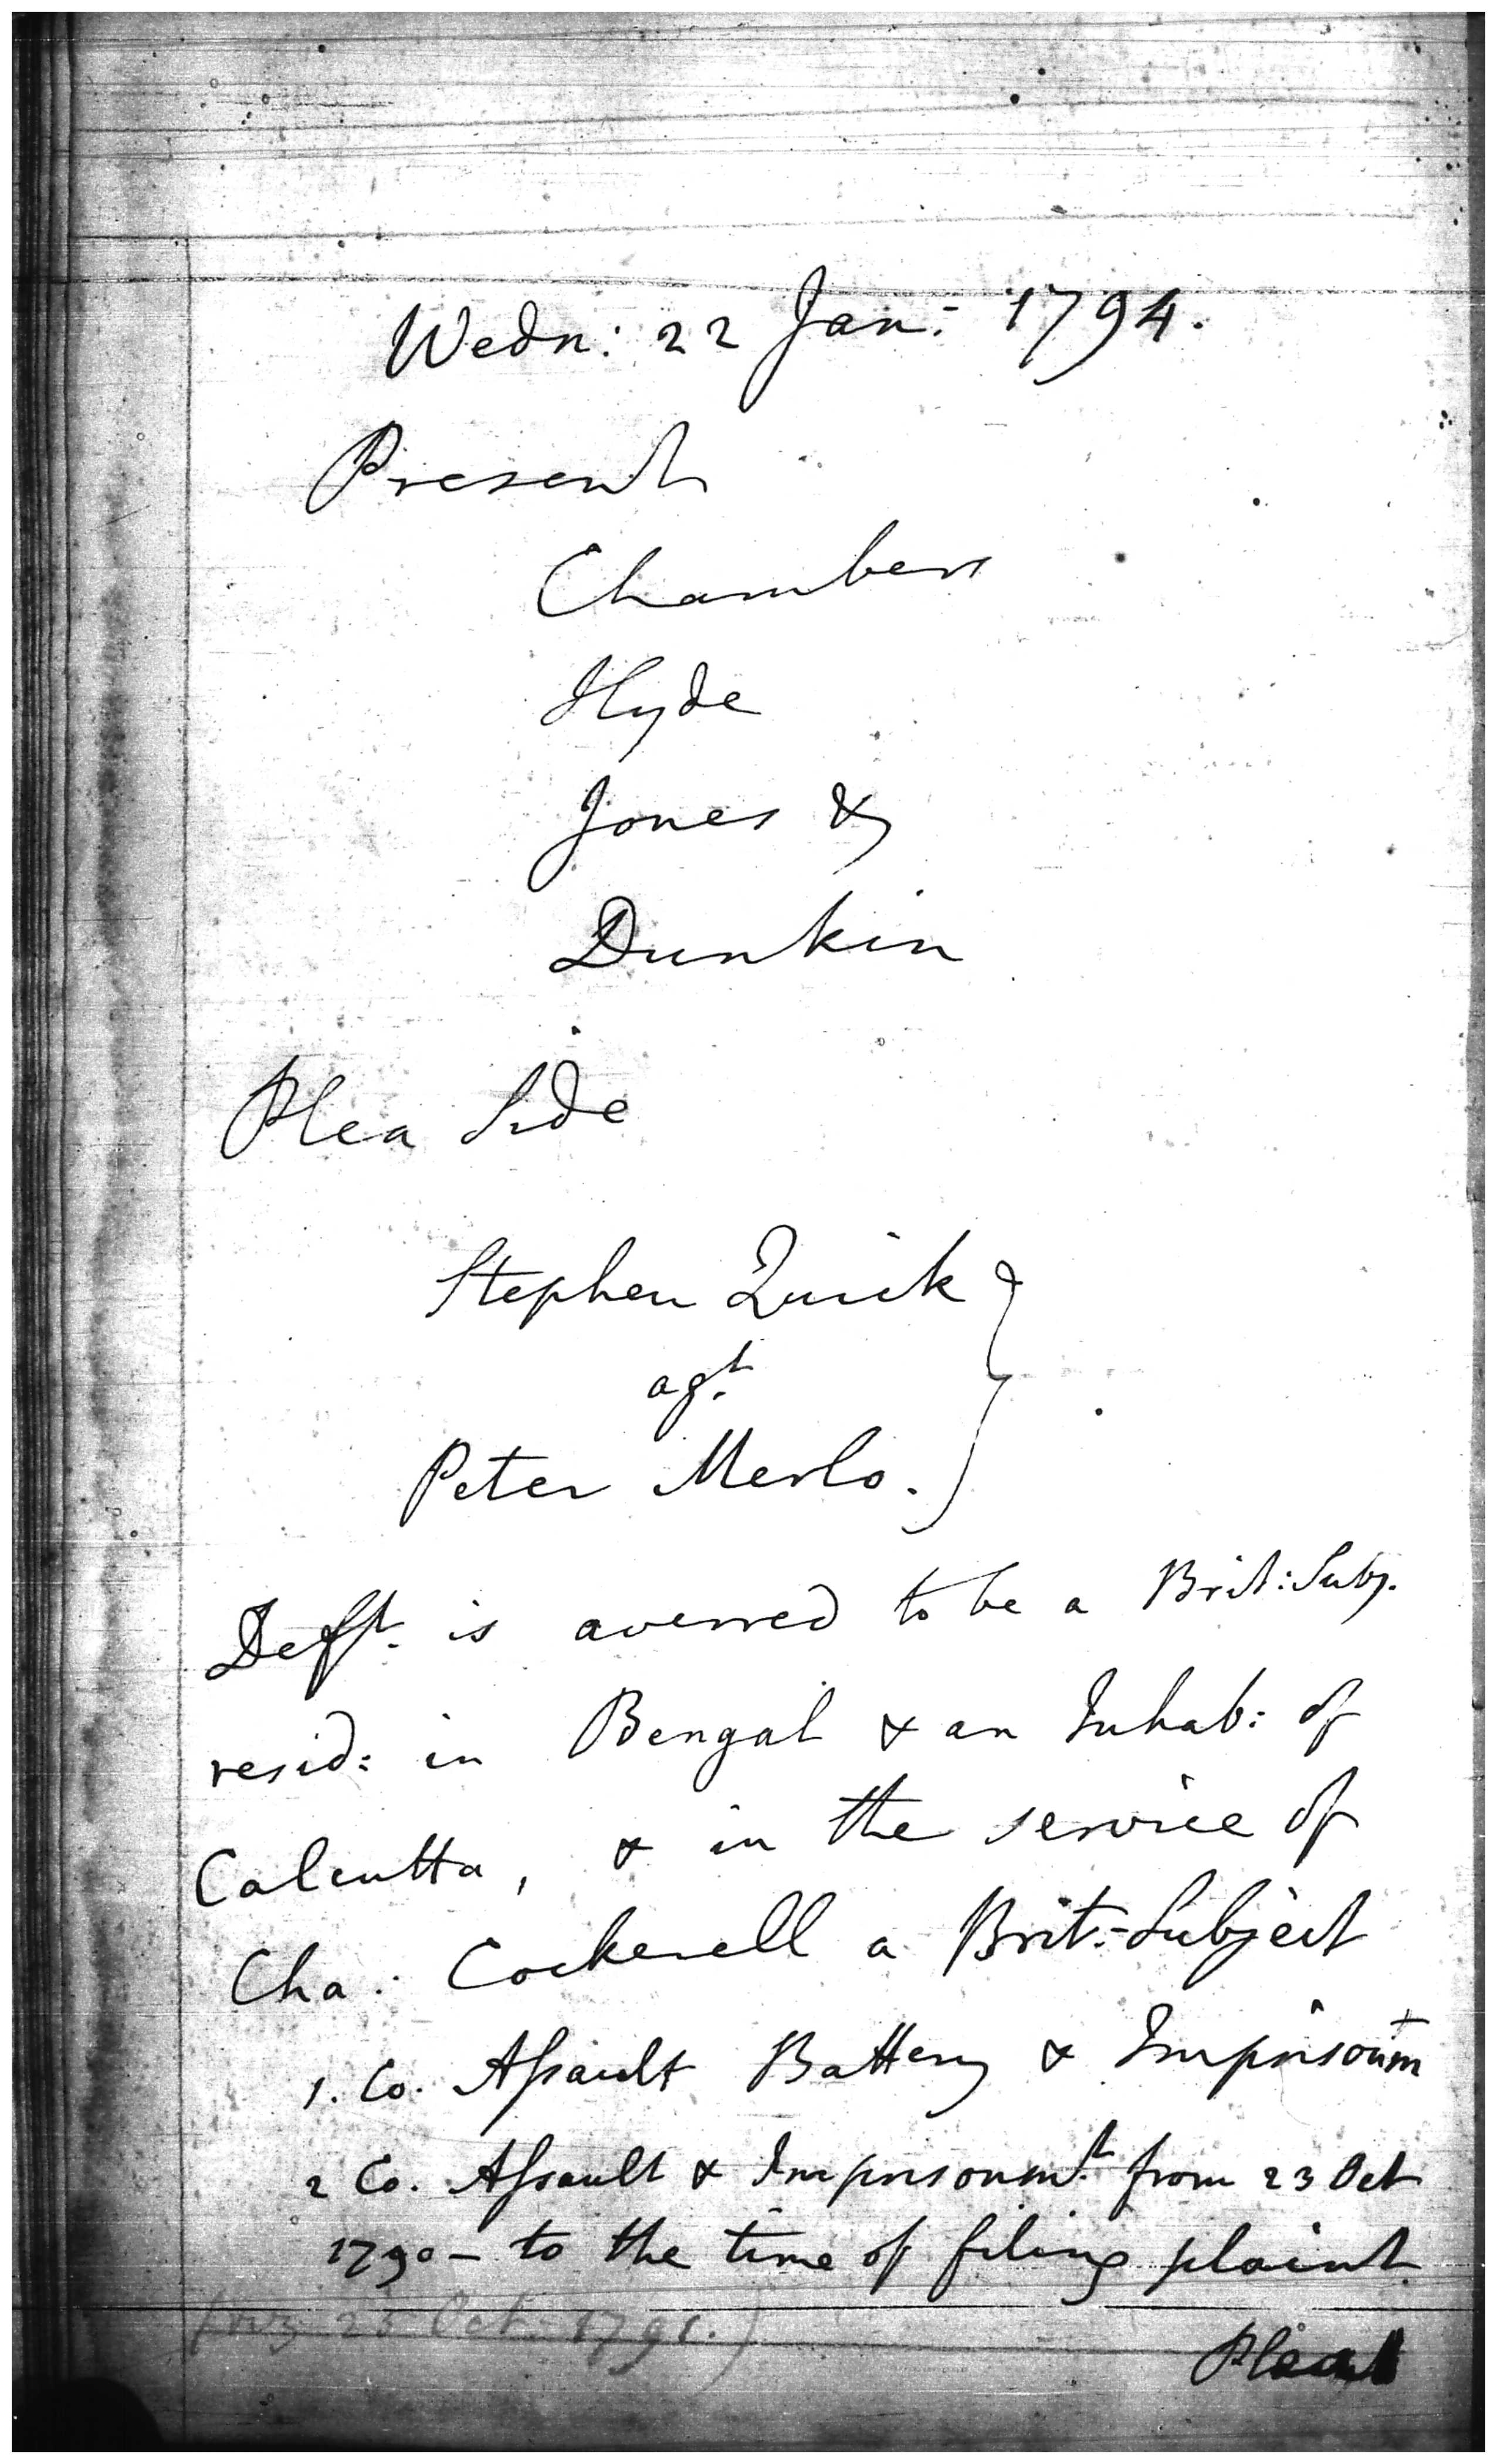 Wedn: 22 Jan: 1794.
Present
Chambers
Hyde
Jones &
Dunkin
Plea Side
Stephen Quick
agt.
Peter Merlo.
Deft. is averred to be a Brit: Subj.
resid: in Bengal & an Inhab: of
Calcutta, & in the service of
Cha: Cockerell a Brit: Subject
1. Co. Assault Battery & Imprisonmt
2 Co. Assault & Imprisonmt. from 23 Oct
1790 – to the time of filing plaint
(viz 25 Oct. 1791.)